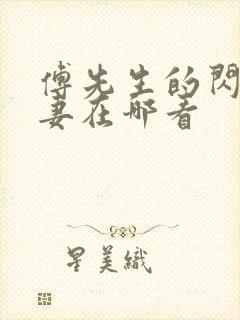 傅先生的閃
妻在哪看
星美織